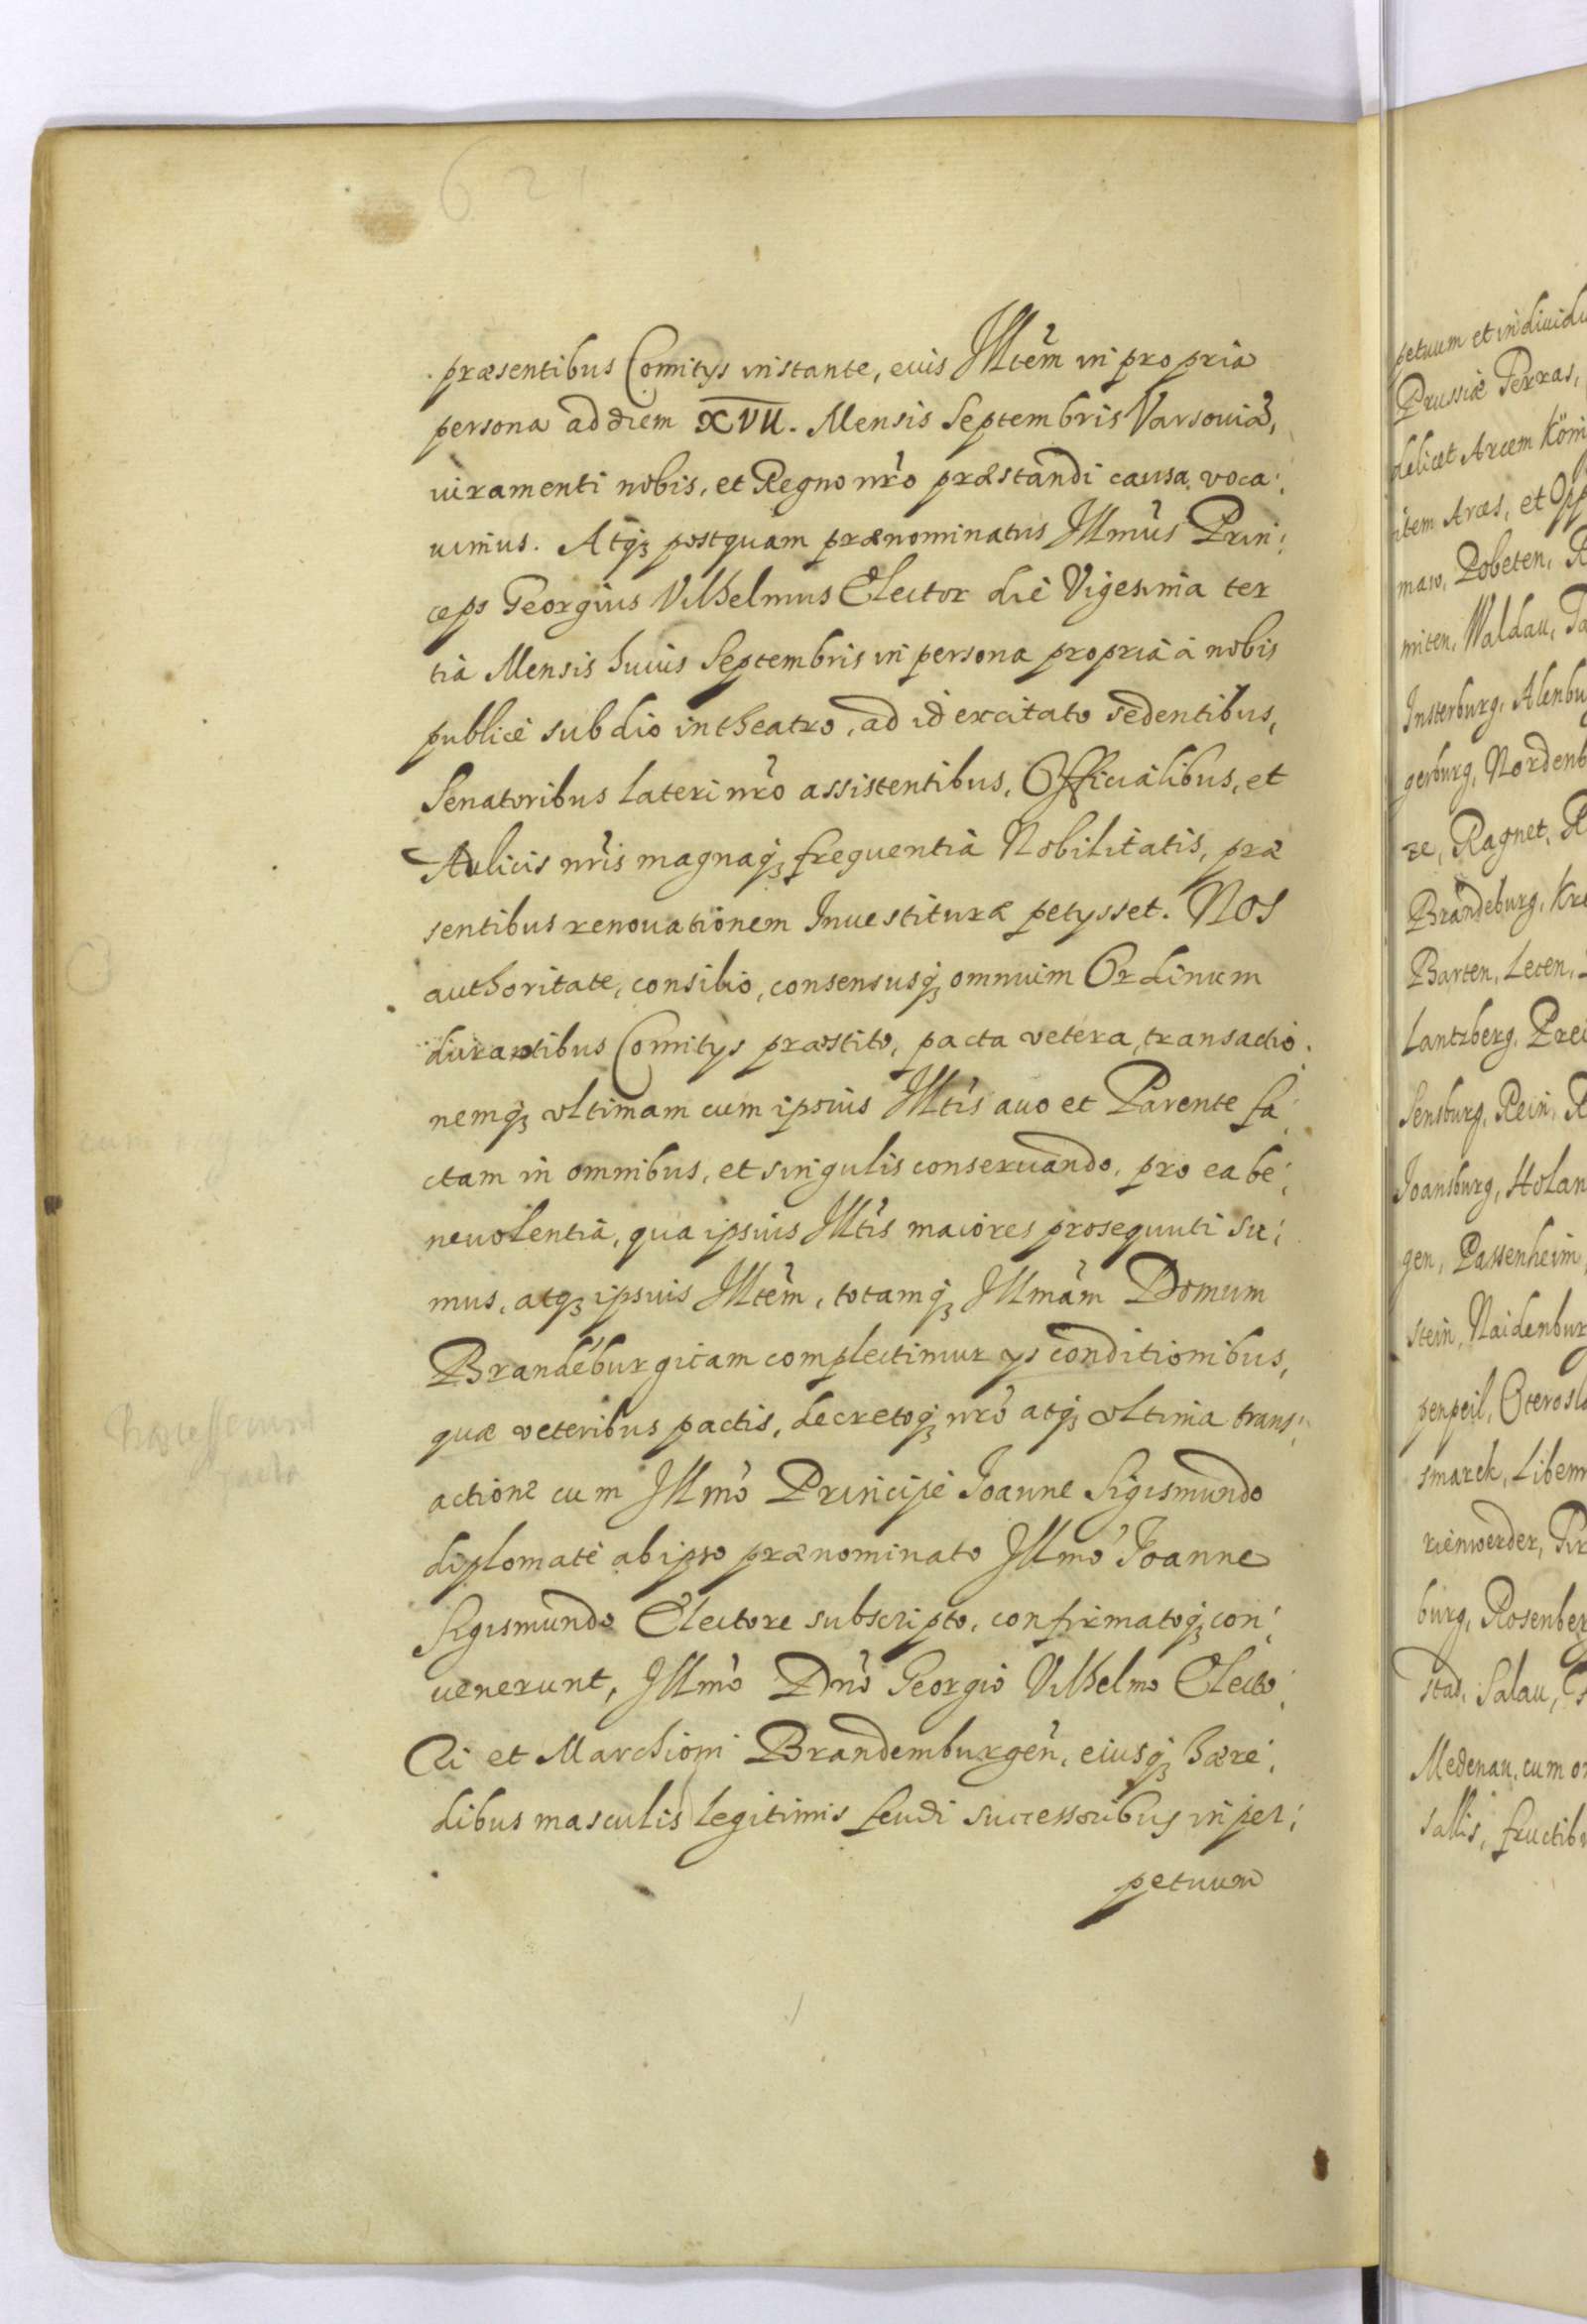 621
præsentibus Comitys instante, euis Illtẽm in propria
persona ad diem XVII. Mensis Septembris Varsouiã,
iuramenti nobis, et Regno nr̃o præstandi causa voca:
uimus. Atq3 postquam prænominatus Illmũs Prin:
ceps Georgius Vilhelmus Elector die Vigesima ter
tia Mensis huius Septembris in persona propria à nobis
publicè sub dio in theatro, ad id excitato sedentibus,
Senatoribus lateri nr̃o assistentibus, Officialibus, et
Aulicis nr̃is magnaq3 frequentia Nobilitatis, præ
sentibus renouationem Inuestituræ petysset. Nos
authoritate, consilio, consensusq3 omnium Ordinum
durantibus Comitys præstito, pacta vetera, transactio:
nemq3 vltimam cum ipsius Illtĩs auo et Parente fa:
ctam in omnibus, et singulis conseruando, pro ea be:
neuolentia, qua ipsius Illtĩs maiores prosequuti su:
mus, atq3 ipsuis Illtẽm, totamq3 Illmãm Domum
Brandéburgicam complectimur ys conditionibus,
quæ veteribus pactis, decretoq3 nr̃o atq3 vltima trans:
actione cum Illmõ Principe Joanne Sigismundo
diplomate ab ipso prænominato Illmõ Joanne
Sigismundo Electore subscripto, confirmatoq3 con:
uenerunt, Illmõ Dnõ Georgio Vilhelmo Electo:
ri et Marchioni Brandemburgeñ, eiusq3 hære:
dibus masculis legitimis feudi successoribus in per:
petuum
petuum et indiuidu
Prussiæ Terras,
delicet Arcem Köni
item Arces, et Opp
maw, Pobeten, R
miten, Waldau, Ta
Insterburg, Alenbu
gerburg, Nordenb
ze, Ragnet, R
Brandeburg, Kre
Barten, Lecen,
Lantzberg, Prei
Sensburg, Rein, R
Joansburg, Holan
gen, Passenheim
stein, Naidenbur
penpeil, Oterosl
smarck, Libem
rienwerder,
burg, Rosenber
stad, Salau,
Medenau, cum o
sallis, fructib